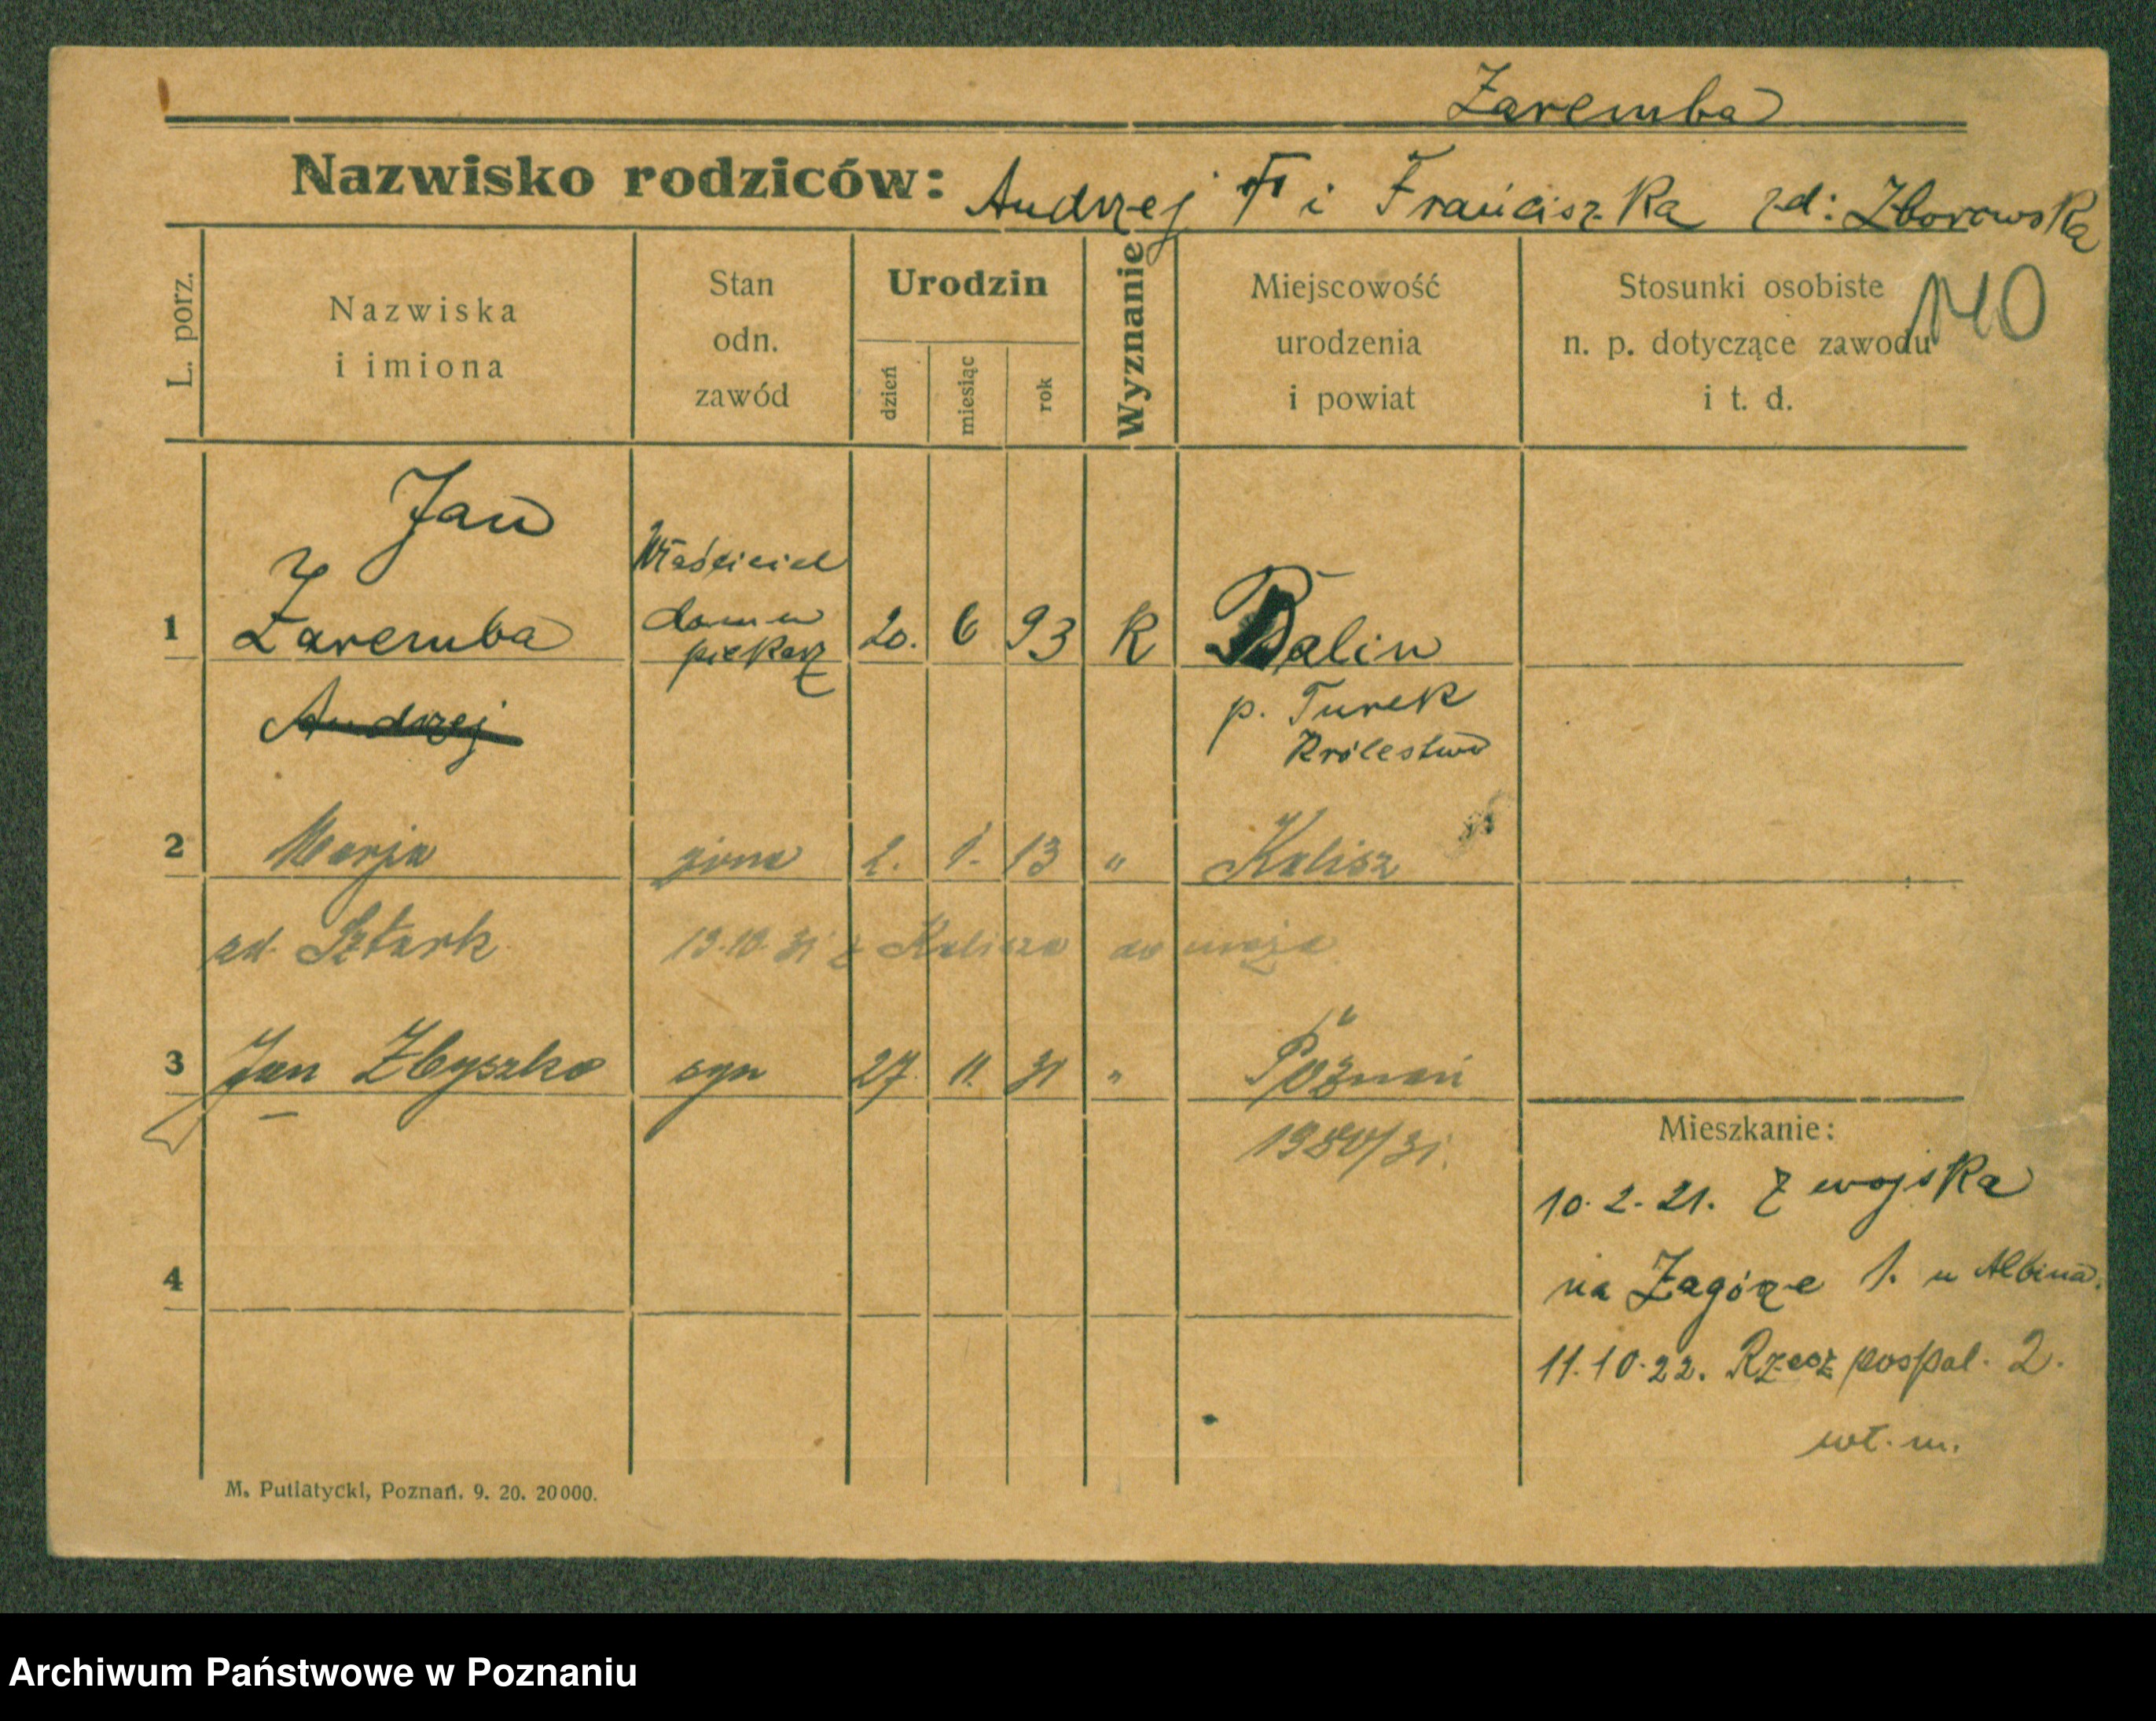 Zaremba
Nazwisko rodziców: Andrzej i Franciszka zd: Zborowska
L. porz.
Nazwiska
i imiona
Stan
odn.
zawód
Urodzin
dzień
miesiąc
rok
Wyznanie
Miejscowość
urodzenia
i powiat
Stosunki osobiste
n. p. dotyczące zawodu
i t. d.
140
Jan
1 Zaremba
Andrzej
Właściciel
domu
piekarz
20. 6 93 K
Balin
p. Turek
Królestwo
2 Marja żona 2. 1. 13 " Kalisz
zd. Sztark 13.10.31 z Kalisza do męża
3 Jan Zbyszko syn 27. 11. 31 " Poznań
1980/31.
4
Mieszkanie:
10.2.21. z wojska
na Zagórze 1. u Albina.
11.10.22. Rzeczpospol. 2.
wł. m.
M. Putiatycki, Poznań. 9. 20. 20000.
Archiwum Państwowe w Poznaniu